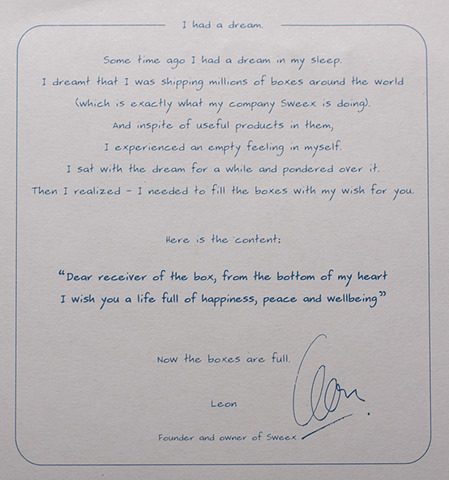 I had a dream.
Some time ago I had a dream in my sleep.
I dreamt that I was shipping millions of boxes around the world
(which is exactly what my company Sweex is doing).
And inspite of useful products in them,
I experienced an empty feeling in myself.
I sat with the dream for a while and pondered over it.
Then I realized - I needed to fill the boxes with my wish for you.
Here is the content:
“Dear receiver of the box, from the bottom of my heart
I wish you a life full of happiness, peace and wellbeing”
Now the boxes are full.
Leon
Leon
Founder and owner of Sweex